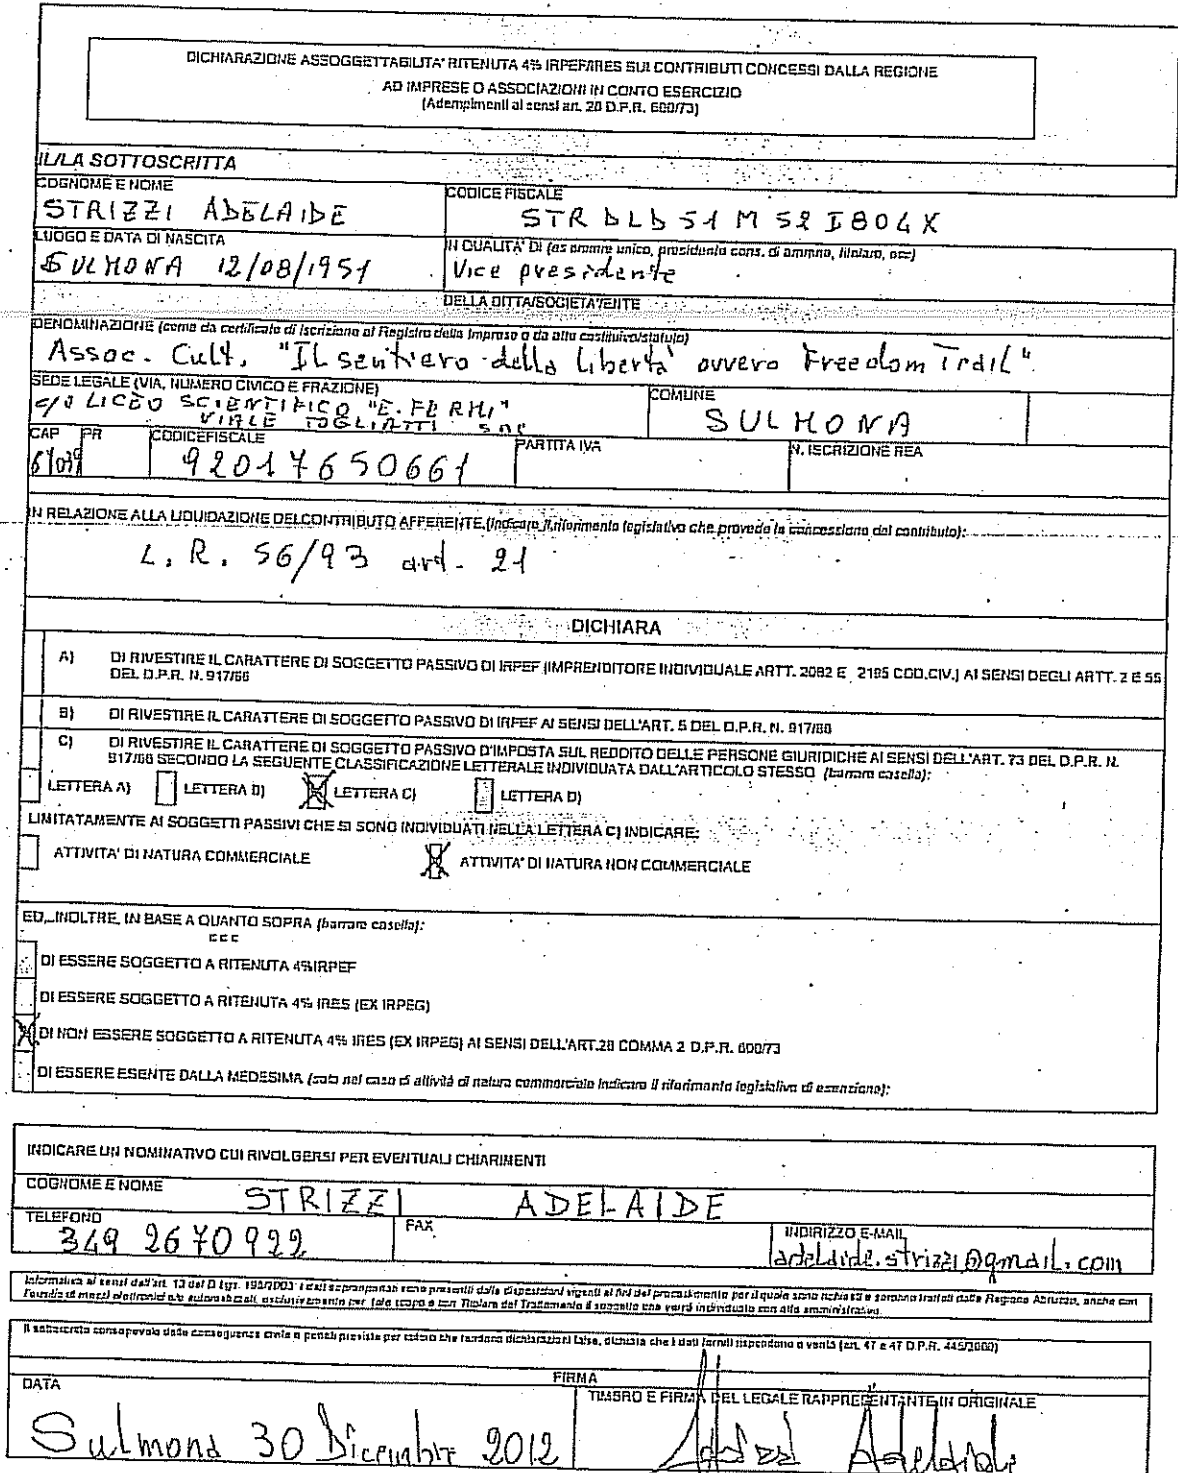 DICHIARAZIONE ASSOGGETTABILITA' RITENUTA 4% IRPEF/IRES SUI CONTRIBUTI CONCESSI DALLA REGIONE
AD IMPRESE O ASSOCIAZIONI IN CONTO ESERCIZIO
(Adempimenti ai sensi art. 28 D.P.R. 600/73)
IL/LA SOTTOSCRITTA
COGNOME E NOME
CODICE FISCALE
STRIZZI ADELAIDE
STR DLD 51 M 52 I804X
LUOGO E DATA DI NASCITA
IN QUALITA' DI (es ammre unico, presidente cons. di ammne, titolare, ecc)
SULMONA 12/08/1951
Vice presidente
DELLA DITTA/SOCIETA'/ENTE
DENOMINAZIONE (come da certificato di iscrizione al Registro delle Imprese o da atto costitutivo/statuto)
Assoc. Cult. "Il sentiero della libertà ovvero Freedom Trail".
SEDE LEGALE (VIA, NUMERO CIVICO E FRAZIONE)
COMUNE
c/o LICEO SCIENTIFICO "E. FERMI"
VIALE TOGLIATTI snc
SULMONA
CAP PR CODICEFISCALE PARTITA IVA N. ISCRIZIONE REA
67039 92017650661
IN RELAZIONE ALLA LIQUIDAZIONE DELCONTRIBUTO AFFERENTE (indicare il riferimento legislativo che prevede la concessione del contributo):
L. R. 56/93 art. 21
DICHIARA
A) DI RIVESTIRE IL CARATTERE DI SOGGETTO PASSIVO DI IRPEF (IMPRENDITORE INDIVIDUALE ARTT. 2082 E 2195 COD.CIV.) AI SENSI DEGLI ARTT. 2 E 55
DEL D.P.R. N. 917/86
B) DI RIVESTIRE IL CARATTERE DI SOGGETTO PASSIVO DI IRPEF AI SENSI DELL'ART. 5 DEL D.P.R. N. 917/86
C) DI RIVESTIRE IL CARATTERE DI SOGGETTO PASSIVO D'IMPOSTA SUL REDDITO DELLE PERSONE GIURIDICHE AI SENSI DELL'ART. 73 DEL D.P.R. N.
917/86 SECONDO LA SEGUENTE CLASSIFICAZIONE LETTERALE INDIVIDUATA DALL'ARTICOLO STESSO (barrare casella):
LETTERA A) LETTERA B) X LETTERA C) LETTERA D)
LIMITATAMENTE AI SOGGETTI PASSIVI CHE SI SONO INDIVIDUATI NELLA LETTERA C) INDICARE:
ATTIVITA' DI NATURA COMMERCIALE X ATTIVITA' DI NATURA NON COMMERCIALE
ED, INOLTRE, IN BASE A QUANTO SOPRA (barrare casella):
DI ESSERE SOGGETTO A RITENUTA 4%IRPEF
DI ESSERE SOGGETTO A RITENUTA 4% IRES (EX IRPEG)
X DI NON ESSERE SOGGETTO A RITENUTA 4% IRES (EX IRPEG) AI SENSI DELL'ART.28 COMMA 2 D.P.R. 600/73
DI ESSERE ESENTE DALLA MEDESIMA (solo nel caso di attività di natura commerciale indicare il riferimento legislativo di esenzione):
INDICARE UN NOMINATIVO CUI RIVOLGERSI PER EVENTUALI CHIARIMENTI
COGNOME E NOME STRIZZI ADELAIDE
TELEFONO FAX INDIRIZZO E-MAIL
349 2670922 adelaide.strizzi@gmail.com
Informativa ai sensi dell'art. 13 del D.Lgs. 196/2003: i dati sopra riportati sono previsti dalle disposizioni vigenti ai fini del procedimento per il quale sono richiesti e saranno trattati dalla Regione Abruzzo, anche con
l'ausilio di mezzi elettronici e/o automatizzati, esclusivamente per tale scopo e con Titolare del Trattamento il soggetto che verrà individuato con atto amministrativo.
Il sottoscritto consapevole delle conseguenze civili e penali previste per coloro che rendono dichiarazioni false, dichiara che i dati forniti rispondono a verità (art. 47 e 47 D.P.R. 445/2000)
FIRMA
DATA TIMBRO E FIRMA DEL LEGALE RAPPRESENTANTE IN ORIGINALE
Sulmona 30 Dicembre 2012 Adelaide